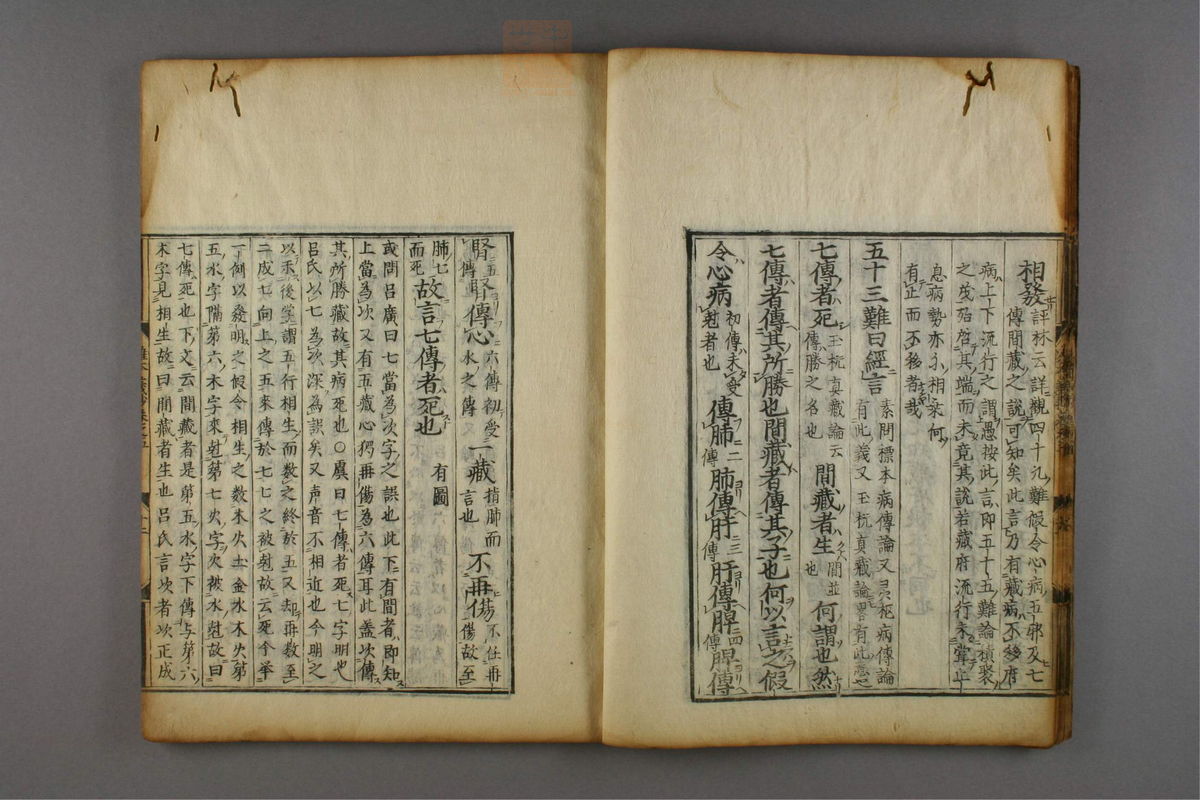 相發 評林云詳觀四十九難假令心病五邪及七
傳間藏之説可知矣此言乃有藏病不移府
病上下流行之謂愚按此言即五十五難論積聚
之茂殆啓其端而未竟其説若藏府流行未嘗止
息病勢亦小相求何
有止而不移者哉
五十三難曰經言 素問標本病傳論又灵枢病傳論
有此義又玉机真藏論畧有此意
七傳者死 玉机真藏論云
傳勝之名也 間藏者生 間並
也 何謂也然
七傳者傳其所勝也間藏者傳其子也何以言之假
令心病 初傳未受
尅者也 傳肺 二
傳 肺傳肝 三
傳 肝傳脾 四
傳 脾傳
腎 五
傳 腎傳心 六傳初受
水之傳 一藏 指肺而
言也 不再傷 不任再
傷故至
肺七
而死 故言七傳者死也 有圖
或問呂廣曰七當為次字之誤也此下有間者即知
上當為次又有五藏心獨再傷為六傳耳此盖次傳
其所勝藏故其病死也○虞曰七傳者死七字明也
呂氏以七為次深為誤矣又声音不相近也今明之
以示後学謂五行相生而数之終於五又却再数至
二成七向上之五來傳於七七之被尅故云死今举
一例以發明之假令相生之数木火土金水木火第
五水字隔第六木字來尅第七火字火被水尅故曰
七傳死也下文云間藏者是第五水字下傳与第六
木字見相生故曰間藏者生也呂氏言次者次正成